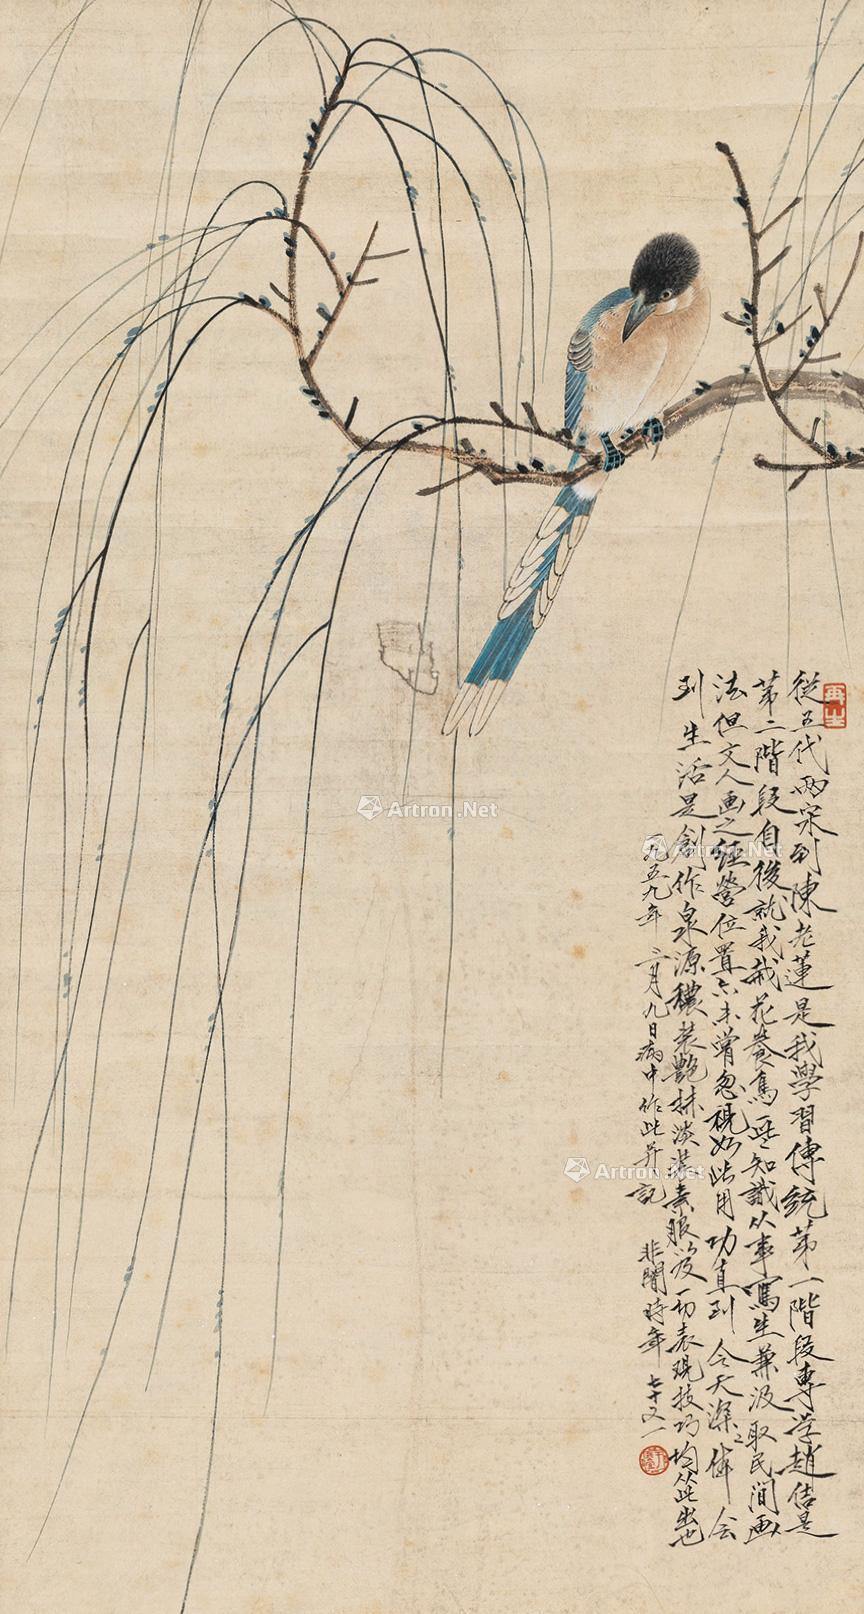 從五代兩宋到陳老蓮是我學習傳統第一階段專学趙佶是
第二階段自後就我栽花養鳥一些知識从事寫生兼汲取民間画
法但文人画之經營位置亦未嘗忽視如此用功直到今天深之体会
到生活是創作泉源穠裝艷抹淡裝素服以及一切表現技巧均從此出也
一九五九年二月九日病中作此并記 非闇時年七十又一
再生
Artron.Net
Artron.Net
Artron.Net